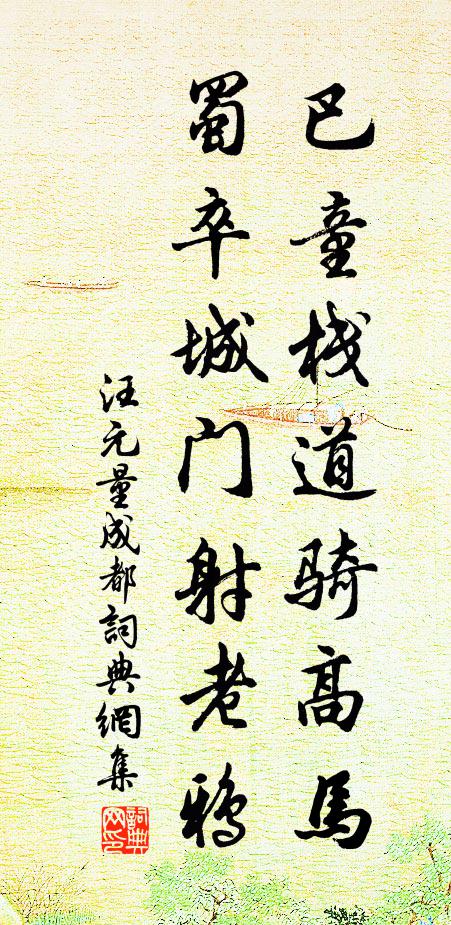 巴童栈道骑高馬
蜀卒城门射老鴉
汪元量成都詞典網集
詞典网印